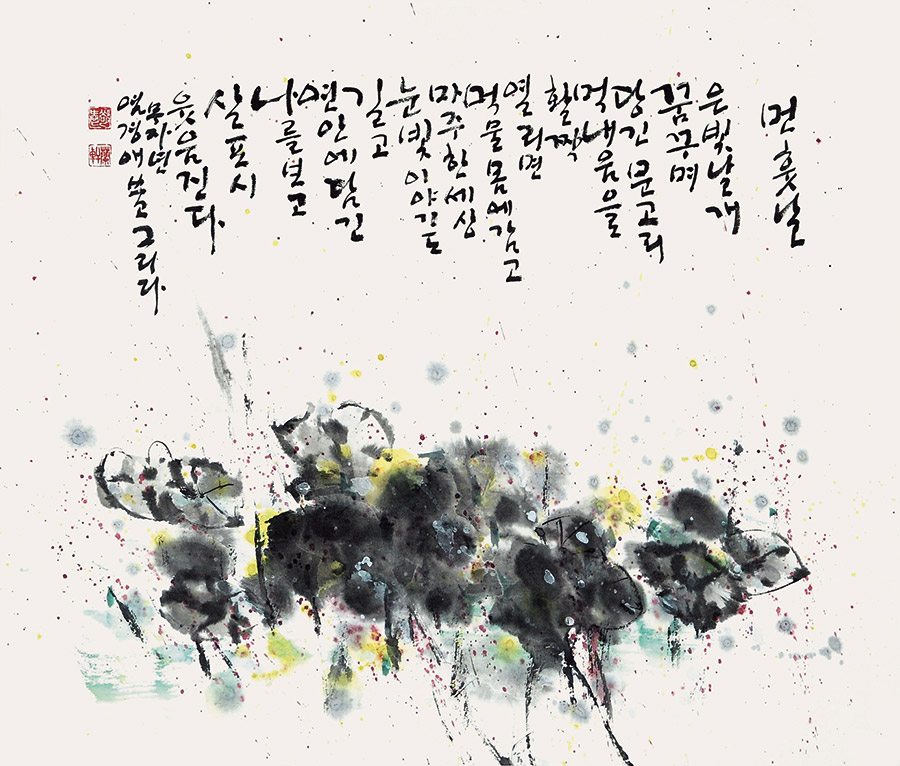 먼 훗날
은빛날개
꿈꾸며
당긴 문고리
먹내음을
활짝
열리면
먹물 몸에 감고
마주한 세상
눈빛 이야기도
길고
연안에 담긴
나를 보고
살포시
웃음 진다.
무자년
염경애 쓰고 그리다.